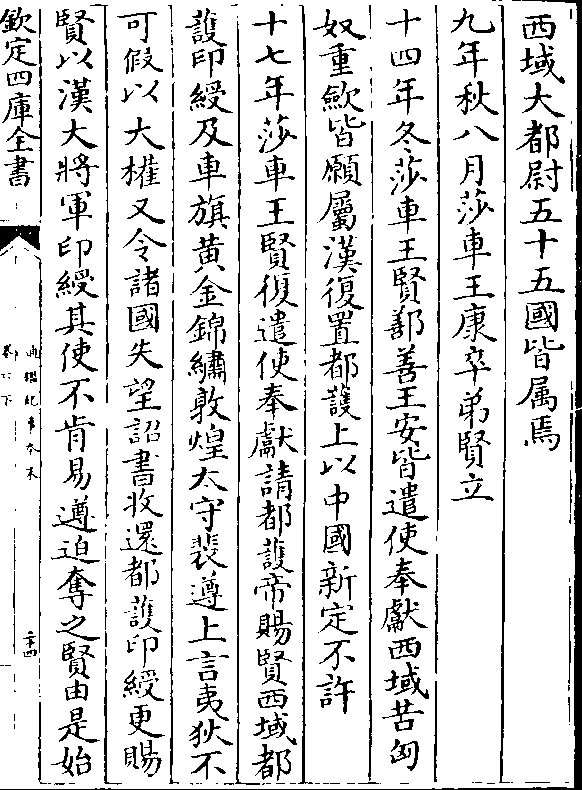 西域大都尉五十五國皆属焉
九年秋八月莎車王康卒弟賢立
十四年冬莎車王賢鄯善王安皆遣使奉獻西域苦匈
奴重歛皆願屬漢復置都護上以中國新定不許
十七年莎車王賢復遣使奉獻請都護帝賜賢西域都
護印綬及車旗黄金錦繡敦煌太守裴遵上言夷狄不
可假以大權又令諸國失望詔書收還都護印綬更賜
賢以漢大將軍印綬其使不肯易遵迫奪之賢由是始
欽定四庫全書
通鑑紀事本末
卷六下
二十四